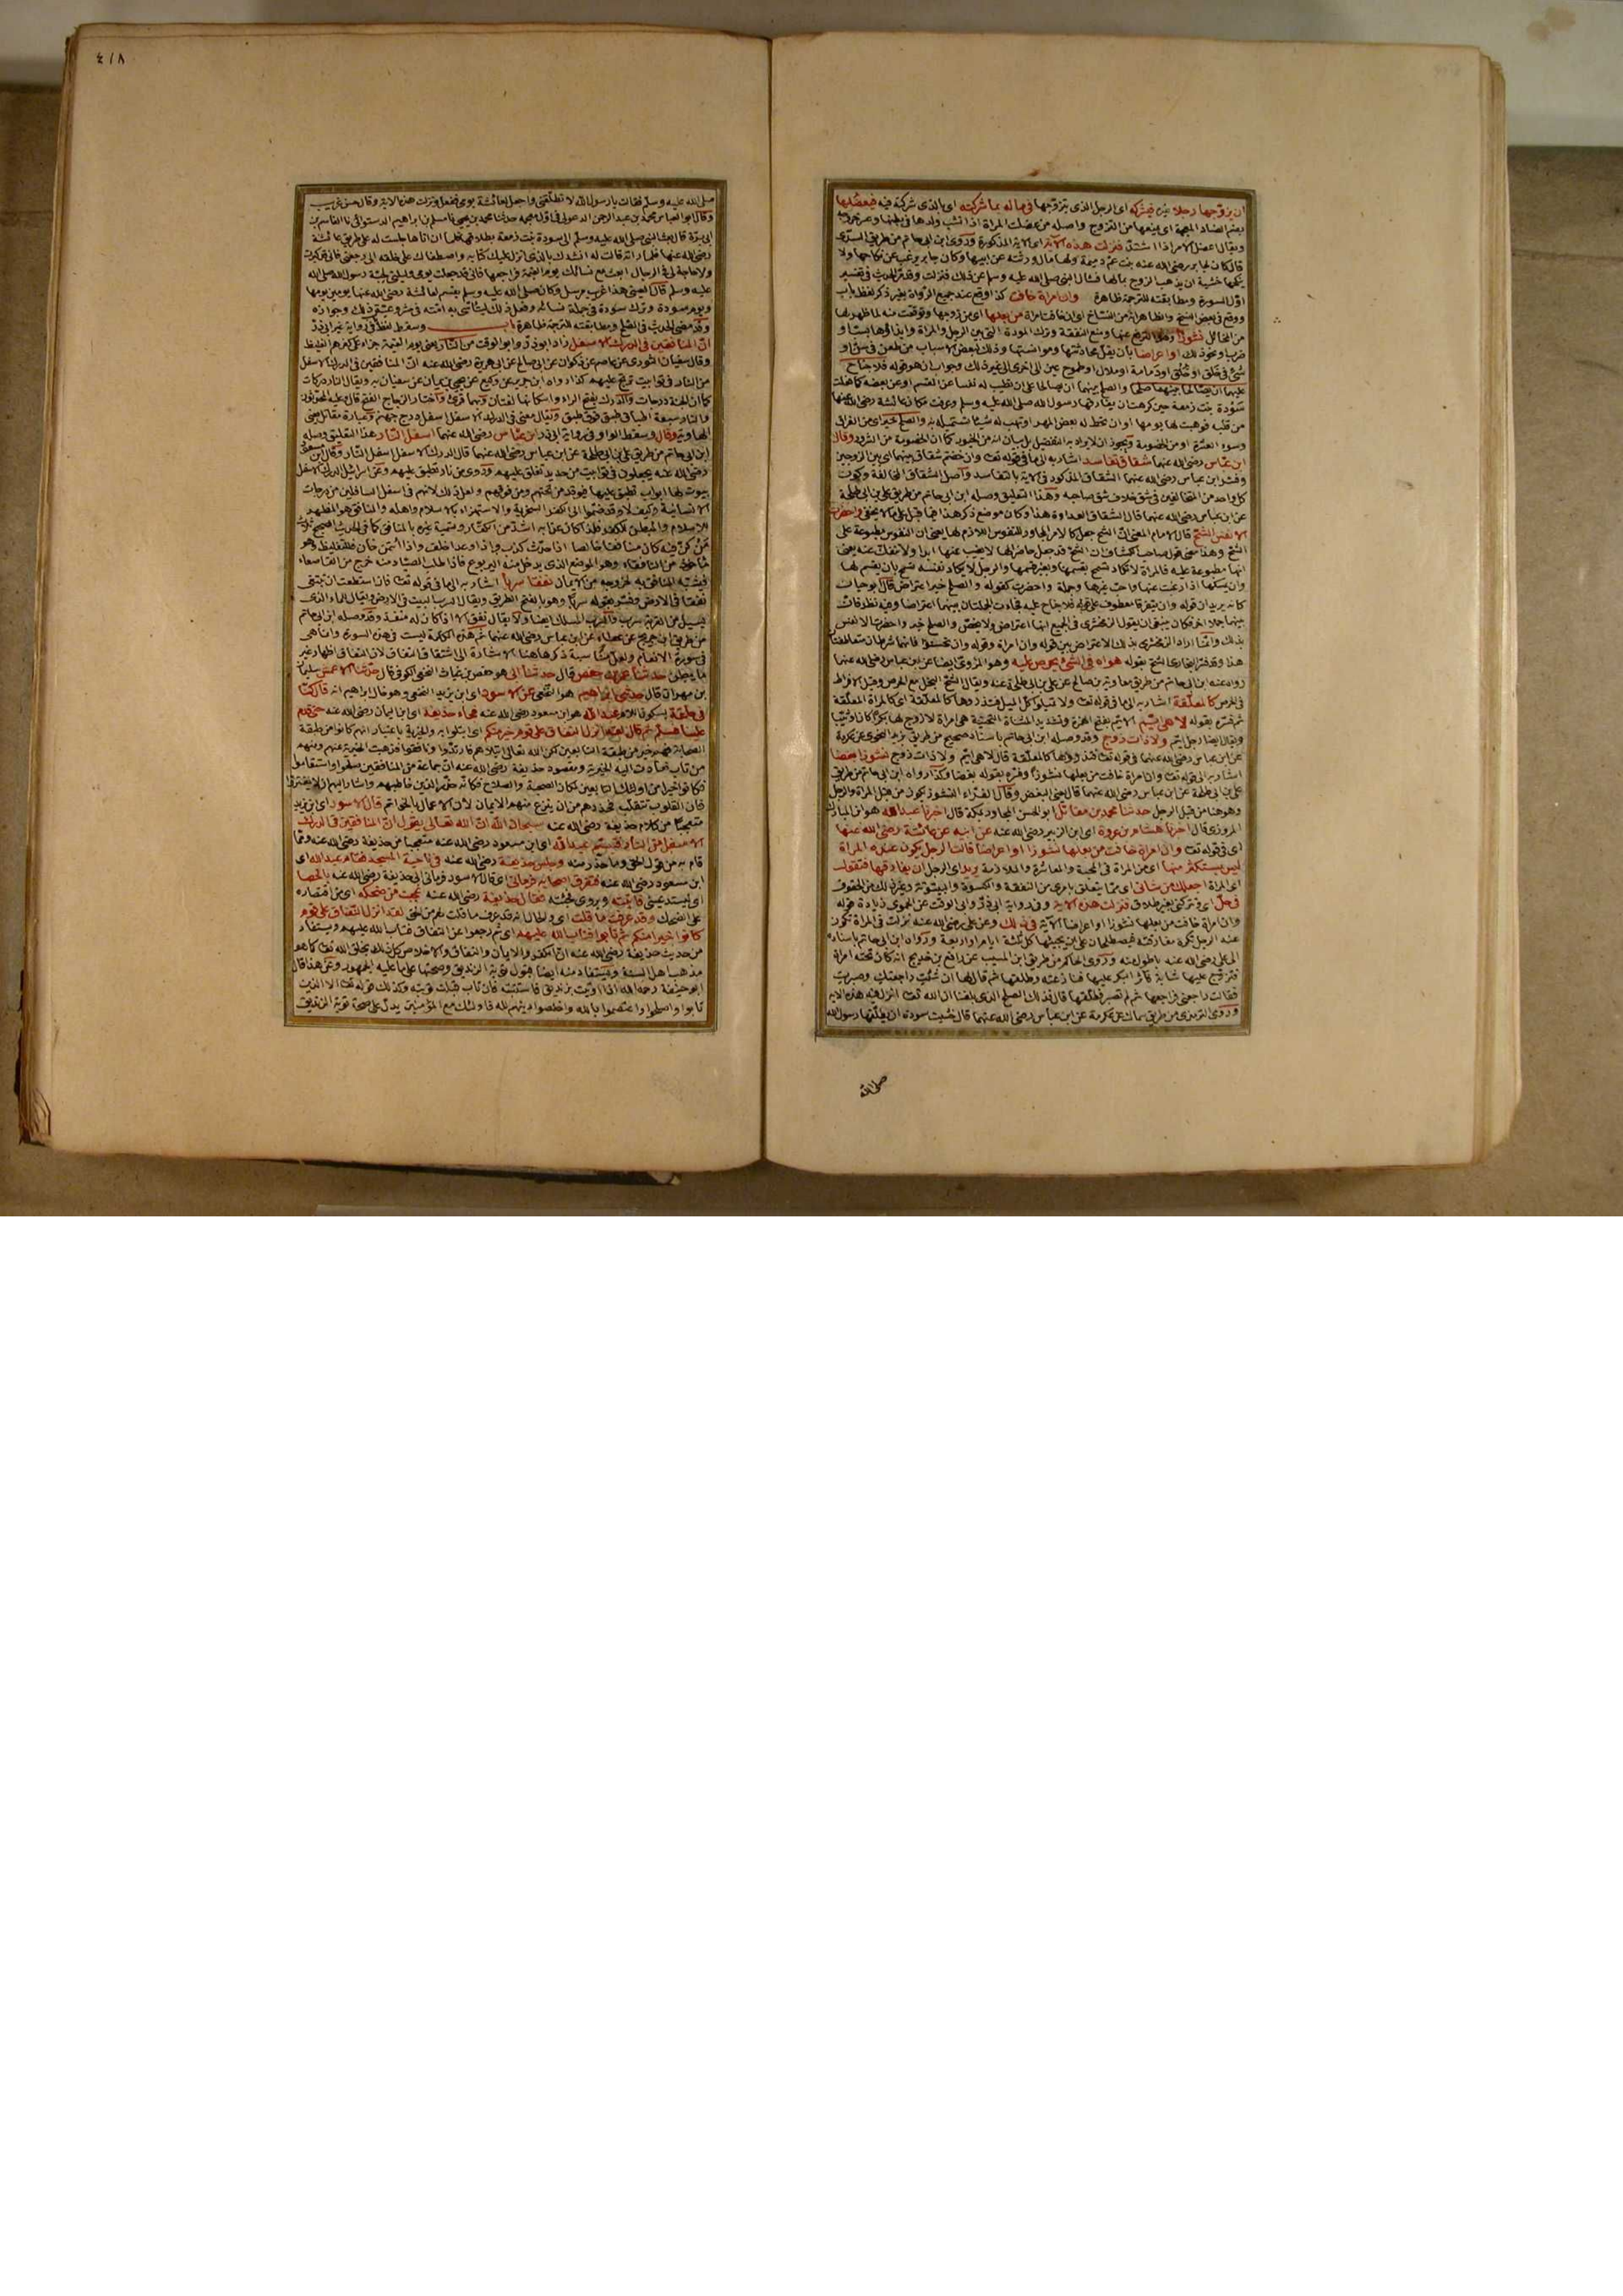 ان يزوجها رجلا غيره فيشركه اى الرجل الذى يتزوجها فى ماله بما شركته اى بالذى شركته فيه فيعضلها
بضم الضاد المعجمة اى يمنعها من التزوج واصله من عضلت المرأة اذا نشب ولدها فى بطنها وعسر خروجه
ويقال اعضل الامر اذا اشتد فنزلت هذه الآية اى الآية المذكورة وروى ابن ابى حاتم من طريق السدى
قال كان لجابر رضى الله عنه بنت عم دميمة ولها مال ورثته عن ابيها وكان جابر يرغب عن نكاحها ولا
ينكحها خشية ان يذهب الزوج بمالها فسأل النبى صلى الله عليه وسلم عن ذلك فنزلت وقد مر الحديث فى تفسير
اول السورة ومطابقته للترجمة ظاهرة وان امرأة خافت كذا وقع عند جميع الرواة بغير ذكر لفظ باب
ووقع فى بعض النسخ والظاهر انه من النساخ اى ان خافت امرأة من بعلها اى من زوجها وتوقعت منه لما ظهر لها
من المخائل نشوزا وهو الترفع عنها ومنع النفقة وترك المودة التى بين الرجل والمرأة وايذاؤها بسب او
ضرب او نحو ذلك او اعراضا بان يقل محادثتها ومؤانستها وذلك لبعض الاسباب من طعن فى سن او
شئ فى خلق او خلق او دمامة او ملال او طموح عين الى اخرى الى غير ذلك وجواب ان هو قوله فلا جناح
عليهما ان يصالحا بينهما صلحا والصلح بينهما ان يصالحا على ان تطيب له نفسا عن القسم او عن بعضه كما فعلت
سودة بنت زمعة حين كرهت ان يفارقها رسول الله صلى الله عليه وسلم وعرفت مكان عائشة رضى الله عنها
من قلبه فوهبت لها يومها او ان تحط له بعض المهر او تهب له شيئا تستميله به والصلح خير اى من الفراق
وسوء العشرة او من الخصومة ويجوز ان لا يراد به التفضيل بل بيان انه من الخيور كما ان الخصومة من الشرور وقال
ابن عباس رضى الله عنهما شقاق تفاسد اشار به الى ما فى قوله تعـ وان خفتم شقاق بينهما اى بين الزوجين
وفسر ابن عباس رضى الله عنهما الشقاق المذكور فى الآية بالتفاسد واصل الشقاق المخالفة وكون
كل واحد من المتخالفين فى شق خلاف شق صاحبه وهذا التعليق وصله ابن ابى حاتم من طريق على بن ابى طلحة
عن ابن عباس رضى الله عنهما قال الشقاق العداوة هذا وكان موضع ذكر هذا فيما قبل على ما لا يخفى واحضرت
الانفس الشح قال الامام المعنى ان الشح جعل كالامر المجاور للنفوس اللازم لها يعنى ان النفوس مطبوعة على
الشح وهذا معنى قول صاحب الكشاف ان الشح قد جعل حاضرا لها لا يغيب عنها ابدا ولا تنفك عنه يعنى
انها مطبوعة عليه فالمرأة لا تكاد تسمح بقسمها وبغير قسمها والرجل لا يكاد نفسه تسمح بان يقسم لها
وان يمسكها اذا رغب عنها واحب غيرها وجملة واحضرت كقوله والصلح خير اعتراض قال ابو حيان
كانه يريد ان قوله وان يتفرقا معطوف على قوله فلا جناح عليه فجاءت الجملتان بينهما اعتراضا وفيه نظر فان
بينهما جملا اخر فكان ينبغى ان يقول الزمخشرى فى الجميع انها اعتراض ولا يخص والصلح خير واحضرت الانفس
بذلك وانما اراد الزمخشرى بذلك الاعتراض بين قوله وان امرأة وقوله وان تحسنوا فانهما شرطان متعاطفان
هذا وقد فسر البخارى الشح بقوله هواه فى الشئ يحرص عليه وهو المروى ايضا عن ابن عباس رضى الله عنهما
رواه عنه ابن ابى حاتم من طريق معاوية بن صالح عن على بن ابى طلحة عنه ويقال الشح البخل مع الحرص وقيل الافراط
فى الحرص كالمعلقة اشار به الى ما فى قوله تعـ ولا تميلوا كل الميل فتذروها كالمعلقة اى كالمرأة المعلقة
ثم فسره بقوله لا هى ايم الايم بفتح الهمزة وتشديد المثناة التحتية هى امرأة لا زوج لها بكرا كانا او ثيبا
ويقال ايضا رجل ايم ولا ذات زوج وقد وصله ابن ابى حاتم باسناد صحيح من طريق يزيد النحوى عن عكرمة
عن ابن عباس رضى الله عنهما فى قوله تعـ فتذروها كالمعلقة قال لا هى ايم ولا ذات زوج نشوزا بغضا
اشار به الى قوله تعـ وان امرأة خافت من بعلها نشوزا وفسره بقوله بغضا وكذا رواه ابن ابى حاتم من طريق
على بن ابى طلحة عن ابن عباس رضى الله عنهما قال يعنى البغض وقال الفراء النشوز يكون من قبل المرأة والرجل
وهو هنا من قبل الرجل حدثنا محمد بن مقاتل ابو الحسن المجاور بمكة قال اخبرنا عبد الله هو ابن المبارك
المروزى قال اخبرنا هشام بن عروة اى ابن الزبير رضى الله عنه عن ابيه عن عائشة رضى الله عنها
اى فى قوله تعـ وان امرأة خافت من بعلها نشوزا او اعراضا قالت الرجل يكون عنده المرأة
ليس بمستكثر منها اى من المرأة فى المحبة والمعاشرة والملازمة يريد اى الرجل ان يفارقها فتقول
اى المرأة اجعلك من شأنى اى مما يتعلق بامرى من النفقة والكسوة والبيتوتة وغير ذلك من الحقوق
فى حل اى وتتركنى بغير طلاق فنزلت هذه الآية وفى رواية ابى ذر وابى الوقت عن الحموى زيادة قوله
وان امرأة خافت من بعلها نشوزا او اعراضا الآية فى ذلك وعن على رضى الله عنه نزلت فى المرأة تكون
عند الرجل تكره مفارقته فيصطلحان على ان يجيئها كل ثلثة ايام او اربعة ورواه ابن ابى حاتم باسناده
الى على رضى الله عنه باطول منه وروى الحاكم من طريق ابن المسيب عن رافع بن خديج انه كان تحته امرأة
فتزوج عليها شابة فآثر البكر عليها فنازعته وطلقها ثم قال لها ان شئت راجعتك وصبرت
فقالت راجعنى فراجعها ثم لم تصبر فطلقها قال فذلك الصلح الذى بلغنا ان الله تعـ انزل فيه هذه الآية
وروى الترمذى من طريق سماك عن عكرمة عن ابن عباس رضى الله عنهما قال خشيت سودة ان يطلقها رسول الله
صلى الله
٤١٨
صلى الله عليه وسلم فقالت يا رسول الله لا تطلقنى واجعل لعائشة يومى ففعل ونزلت هذه الآية وقال حسن غريب
وقال ابو العباس محمد بن عبد الرحمن الدغولى فى اوله معجمه حدثنا محمد بن يحيى نا مسلم بن ابراهيم الدستوائى نا القاسم بن
ابى بزة قال بعث النبى صلى الله عليه وسلم الى سودة بنت زمعة بطلاقها فلما ان اتاها جلست له على طريق عائشة
رضى الله عنها فلما رأته قالت له انشدك بالذى انزل عليك كتابه واصطفاك على خلقه لم راجعتنى فانى قد كبرت
ولا حاجة لى فى الرجال ابعث مع نسائك يوم القيمة فراجعها فقالت قد جعلت يومى وليلتى لحبة رسول الله صلى الله
عليه وسلم قال العينى هذا غريب مرسل وكان صلى الله عليه وسلم يقسم لعائشة رضى الله عنها يومين يومها
ويوم سودة وترك سودة فى جملة نسائه وفعل ذلك ليتأسى به امته فى مشروعية ذلك وجوازه
وقد مضى الحديث فى الصلح ومطابقته للترجمة ظاهرة باب وسقط لفظ فى رواية غير ابى ذر
ان المنافقين فى الدرك الاسفل زاد ابو ذر وابو الوقت من النار يعنى يوم القيمة جزاء على كفرهم الغليظ
وقال سفيان الثورى عن عاصم عن ذكوان عن ابى صالح عن ابى هريرة رضى الله عنه ان المنافقين فى الدرك الاسفل
من النار فى توابيت ترتج عليهم كذا رواه ابن جرير عن وكيع عن يحيى بن يمان عن سفيان به ويقال النار دركات
كما ان الجنة درجات والدرك بفتح الراء واسكانها لغتان وبهما قرئ واختار الزجاج الفتح قال وعليه المحدثون
والنار سبعة اطباق طبق فوق طبق ويقال معنى فى الدرك الاسفل اسفل درج جهنم وعبارة مقاتل يعنى
الهاوية وقال وسقط الواو فى رواية ابى ذر ابن عباس رضى الله عنهما اسفل النار هذا التعليق وصله
ابن ابى حاتم من طريق على بن ابى طلحة عن ابن عباس رضى الله عنهما قال الدرك الاسفل اسفل النار وقال ابن مسعود
رضى الله عنه يجعلون فى توابيت من حديد تغلق عليهم وروى من نار تطبق عليهم وعن اسرائيل الدرك الاسفل
بيوت لها ابواب تطبق عليها فيوقد من تحتهم ومن فوقهم ولعل ذلك لانهم فى اسفل السافلين من درجات
الانسانية وكيف لا وقد ضموا الى الكفر السخرية والاستهزاء بالاسلام واهله والمنافق هو المظهر
للاسلام والمبطن للكفر فلذا كان عذابه اشد من الكفار وتسمية غيره بالمنافق كما فى الحديث الصحيح ثلاث
من كن فيه كان منافقا خالصا اذا حدث كذب واذا وعد اخلف واذا ائتمن خان فللتغليظ وهو
مأخوذ من النافقاء وهو الموضع الذى يدخل منه اليربوع فاذا طلب الصياد منه خرج من القاصعاء
فيشبه المنافق به لخروجه من الايمان نفقا سربا اشار به الى ما فى قوله تعـ فان استطعت ان تبتغى
نفقا فى الارض وفسره بقوله سربا وهو بالفتح الطريق ويقال السرب البيت فى الارض ويقال للماء الذى
يسيل من القربة سرب والسرب المسلك ايضا ولا يقال نفق الا اذا كان له منفذ وقد وصله ابن ابى حاتم
من طريق ابن جريج عن عطاء عن ابن عباس رضى الله عنهما ثم هذه الكلمة ليست فى هذه السورة وانما هى
فى سورة الانعام ولعل مناسبة ذكرها هنا الاشارة الى اشتقاق النفاق لان النفاق اظهار غير
ما يبطن حدثنا عمر بن حفص قال حدثنا ابى هو حفص بن غياث النخعى الكوفى قال حدثنا الاعمش سليمان
بن مهران قال حدثنى ابراهيم هو النخعى عن الاسود اى ابن يزيد النخعى وهو خال ابراهيم انه قال كنا
فى حلقة بسكون اللام عبد الله هو ابن مسعود رضى الله عنه فجاء حذيفة اى ابن اليمان رضى الله عنه حتى قام
علينا فسلم ثم قال لقد انزل النفاق على قوم خير منكم اى ابتلوا به والخيرية باعتبار انهم كانوا من طبقة
الصحابة فهم خير من طبقة التابعين لكن الله تعالى ابتلاهم فارتدوا ونافقوا فذهبت الخيرية عنهم ومنهم
من تاب فعادت اليه الخيرية ومقصود حذيفة رضى الله عنه ان جماعة من المنافقين صلحوا واستقاموا
فكانوا خيرا من اولئك التابعين لمكان الصحبة والصلاح فكانه حذر الذين خاطبهم واشار اليهم ان لا يغتروا
فان القلوب تتقلب فحذرهم من ان ينزع منهم الايمان لان الاعمال بالخواتم قال الاسود اى ابن يزيد
متعجبا من كلام حذيفة رضى الله عنه سبحان الله ان الله تعالى يقول ان المنافقين فى الدرك
الاسفل من النار فتبسم عبد الله اى ابن مسعود رضى الله عنه متعجبا من حذيفة رضى الله عنه وبما
قام به من قول الحق وما حذر منه وجلس حذيفة رضى الله عنه فى ناحية المسجد فقام عبد الله اى
ابن مسعود رضى الله عنه فتفرق اصحابه فرمانى اى قال الاسود فرمانى اى حذيفة رضى الله عنه بالحصا
اى ليستدعينى فأتيته ويروى فجئته فقال حذيفة رضى الله عنه عجبت من ضحكه اى من اقتصاره
على الضحك وقد عرف ما قلت اى والحال انه قد عرف ما قلت لهم من الحق لقد انزل النفاق على قوم
كانوا خيرا منكم ثم تابوا فتاب الله عليهم اى ثم رجعوا عن النفاق فتاب الله عليهم ويستفاد
من حديث حذيفة رضى الله عنه ان الكفر والايمان والنفاق والاخلاص كل ذلك بخلق الله تعـ كما هو
مذهب اهل السنة ويستفاد منه ايضا قبول توبة الزنديق وصحتها على ما عليه الجمهور وعن هذا قال
ابو حنيفة رحمه الله اذا اوتيت بزنديق فاستتبته فان تاب قبلت توبته وكذلك قوله تعـ الا الذين
تابوا واصلحوا واعتصموا بالله واخلصوا دينهم لله فاولئك مع المؤمنين يدل على صحة توبة الزنديق